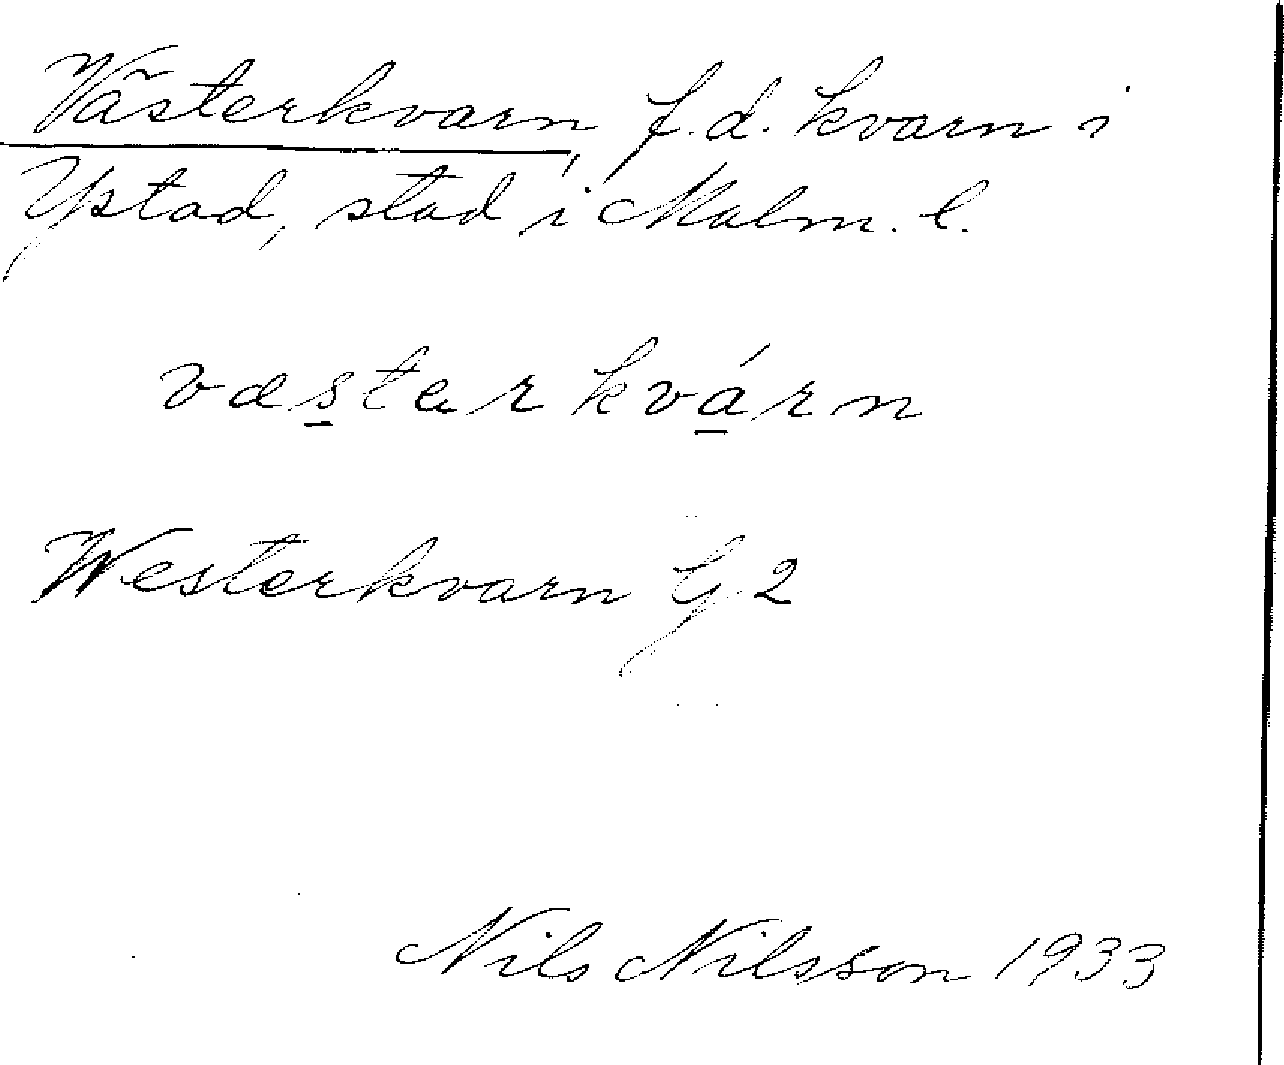 Västerkvarn, f.d. kvarn i
Ystad, stad i Malm. l.
væstarkvárn
Westerkvarn G 2
Nils Nilsson 1933